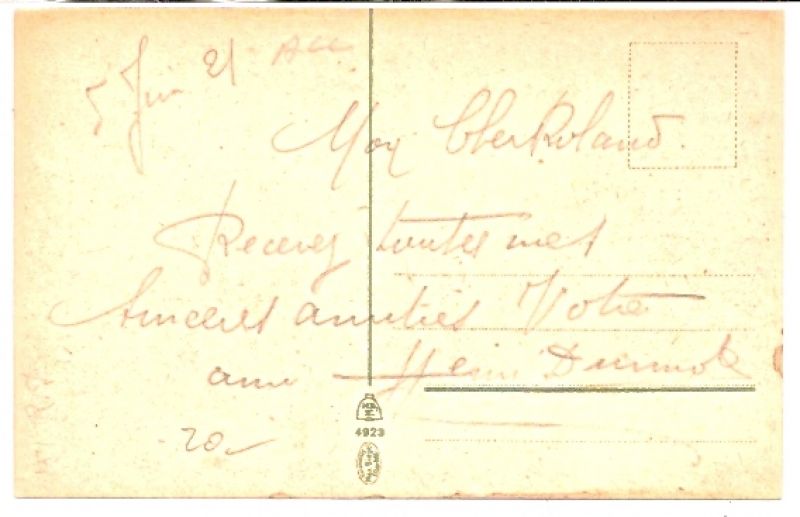 5 Juin 21
Mon Cher Roland.
Recevez toutes mes
sincères amitiés Votre
ami Henri
20
4923